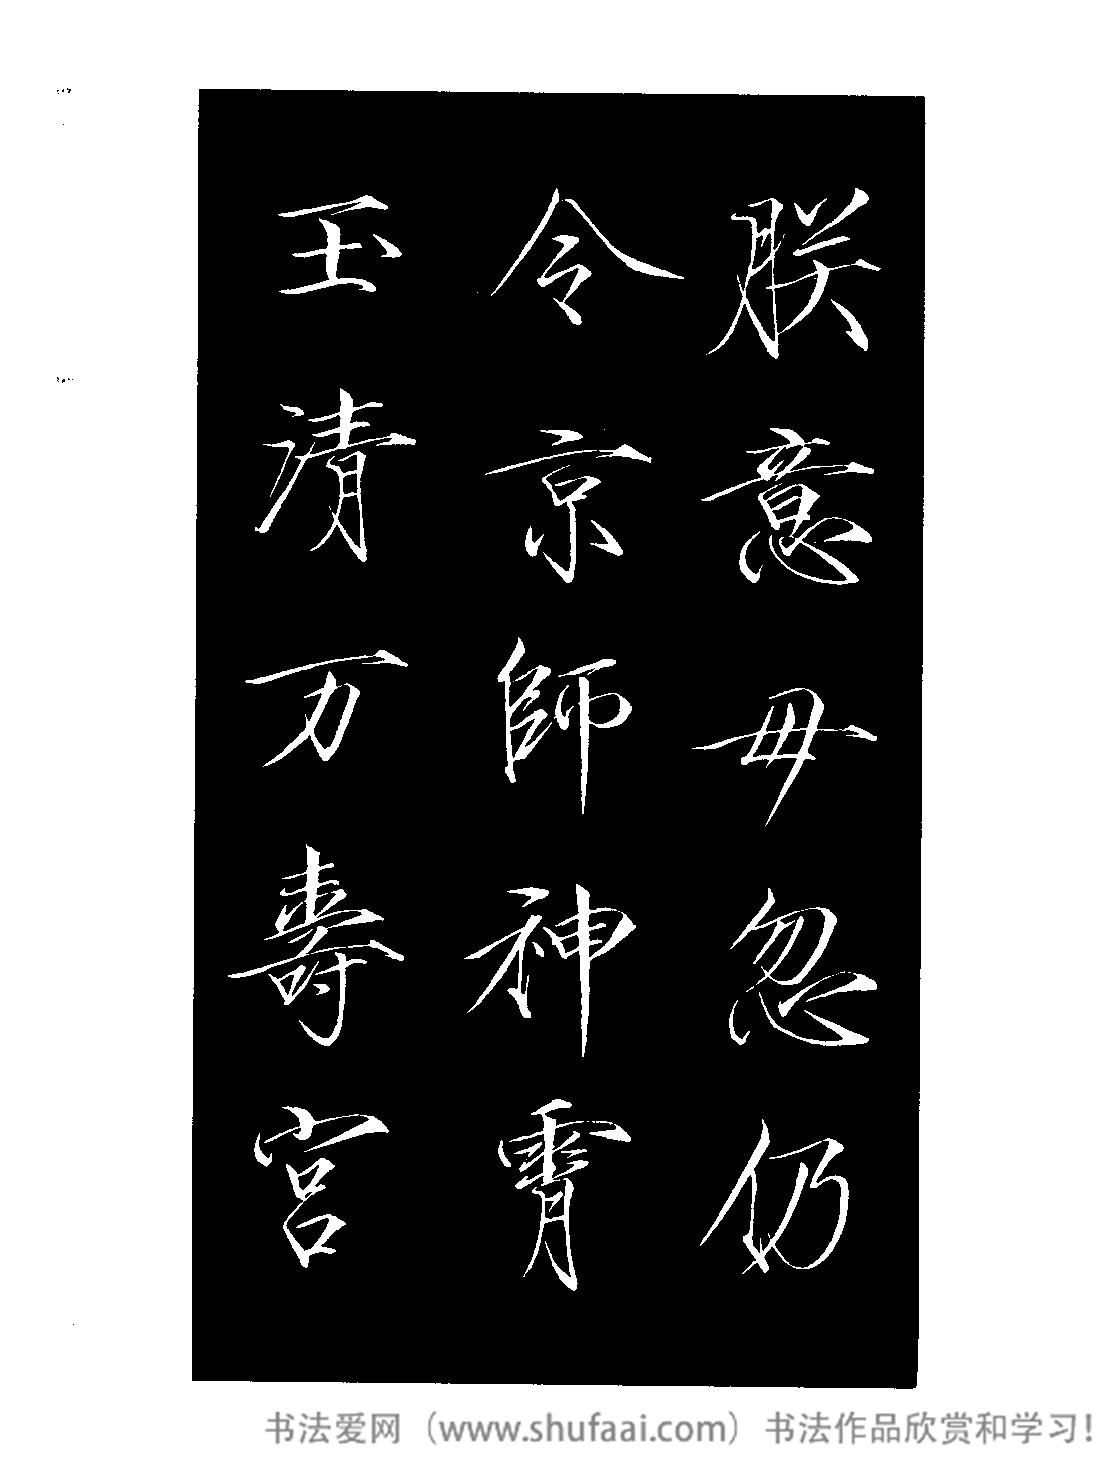 朕意毋忽仍
令京師神霄
玉清万壽宮
书法爱网（www.shufaai.com）书法作品欣赏和学习！